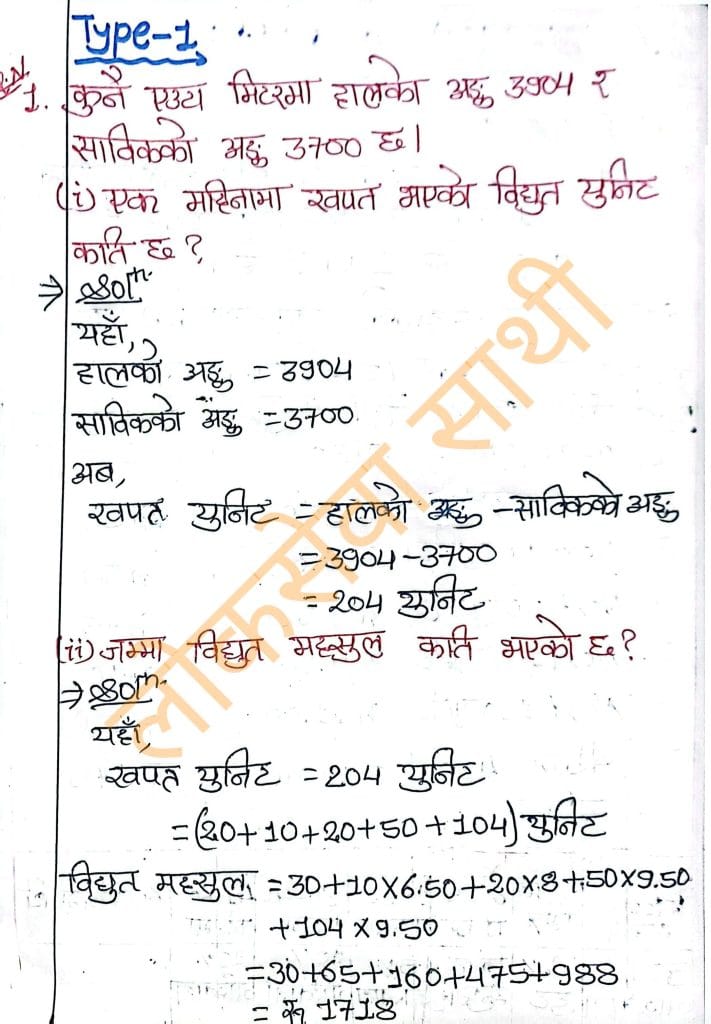 Type-1
Q.N.
1. कुनै एउटा मिटरमा हालको अङ्क 3904 र
साविकको अङ्क 3700 छ।
(i) एक महिनामा खपत भएको विद्युत युनिट
कति छ?
⇒ Solⁿ.
यहाँ,
हालको अङ्क = 3904
साविकको अङ्क = 3700
अब,
खपत युनिट = हालको अङ्क - साविकको अङ्क
= 3904 - 3700
= 204 युनिट
(ii) जम्मा विद्युत महसुल कति भएको छ?
⇒ Solⁿ.
यहाँ,
खपत युनिट = 204 युनिट
= (20+10+20+50+104) युनिट
विद्युत महसुल = 30+10×6.50+20×8+50×9.50
+104×9.50
= 30+65+160+475+988
= रू 1718
लोकसेवा साथी